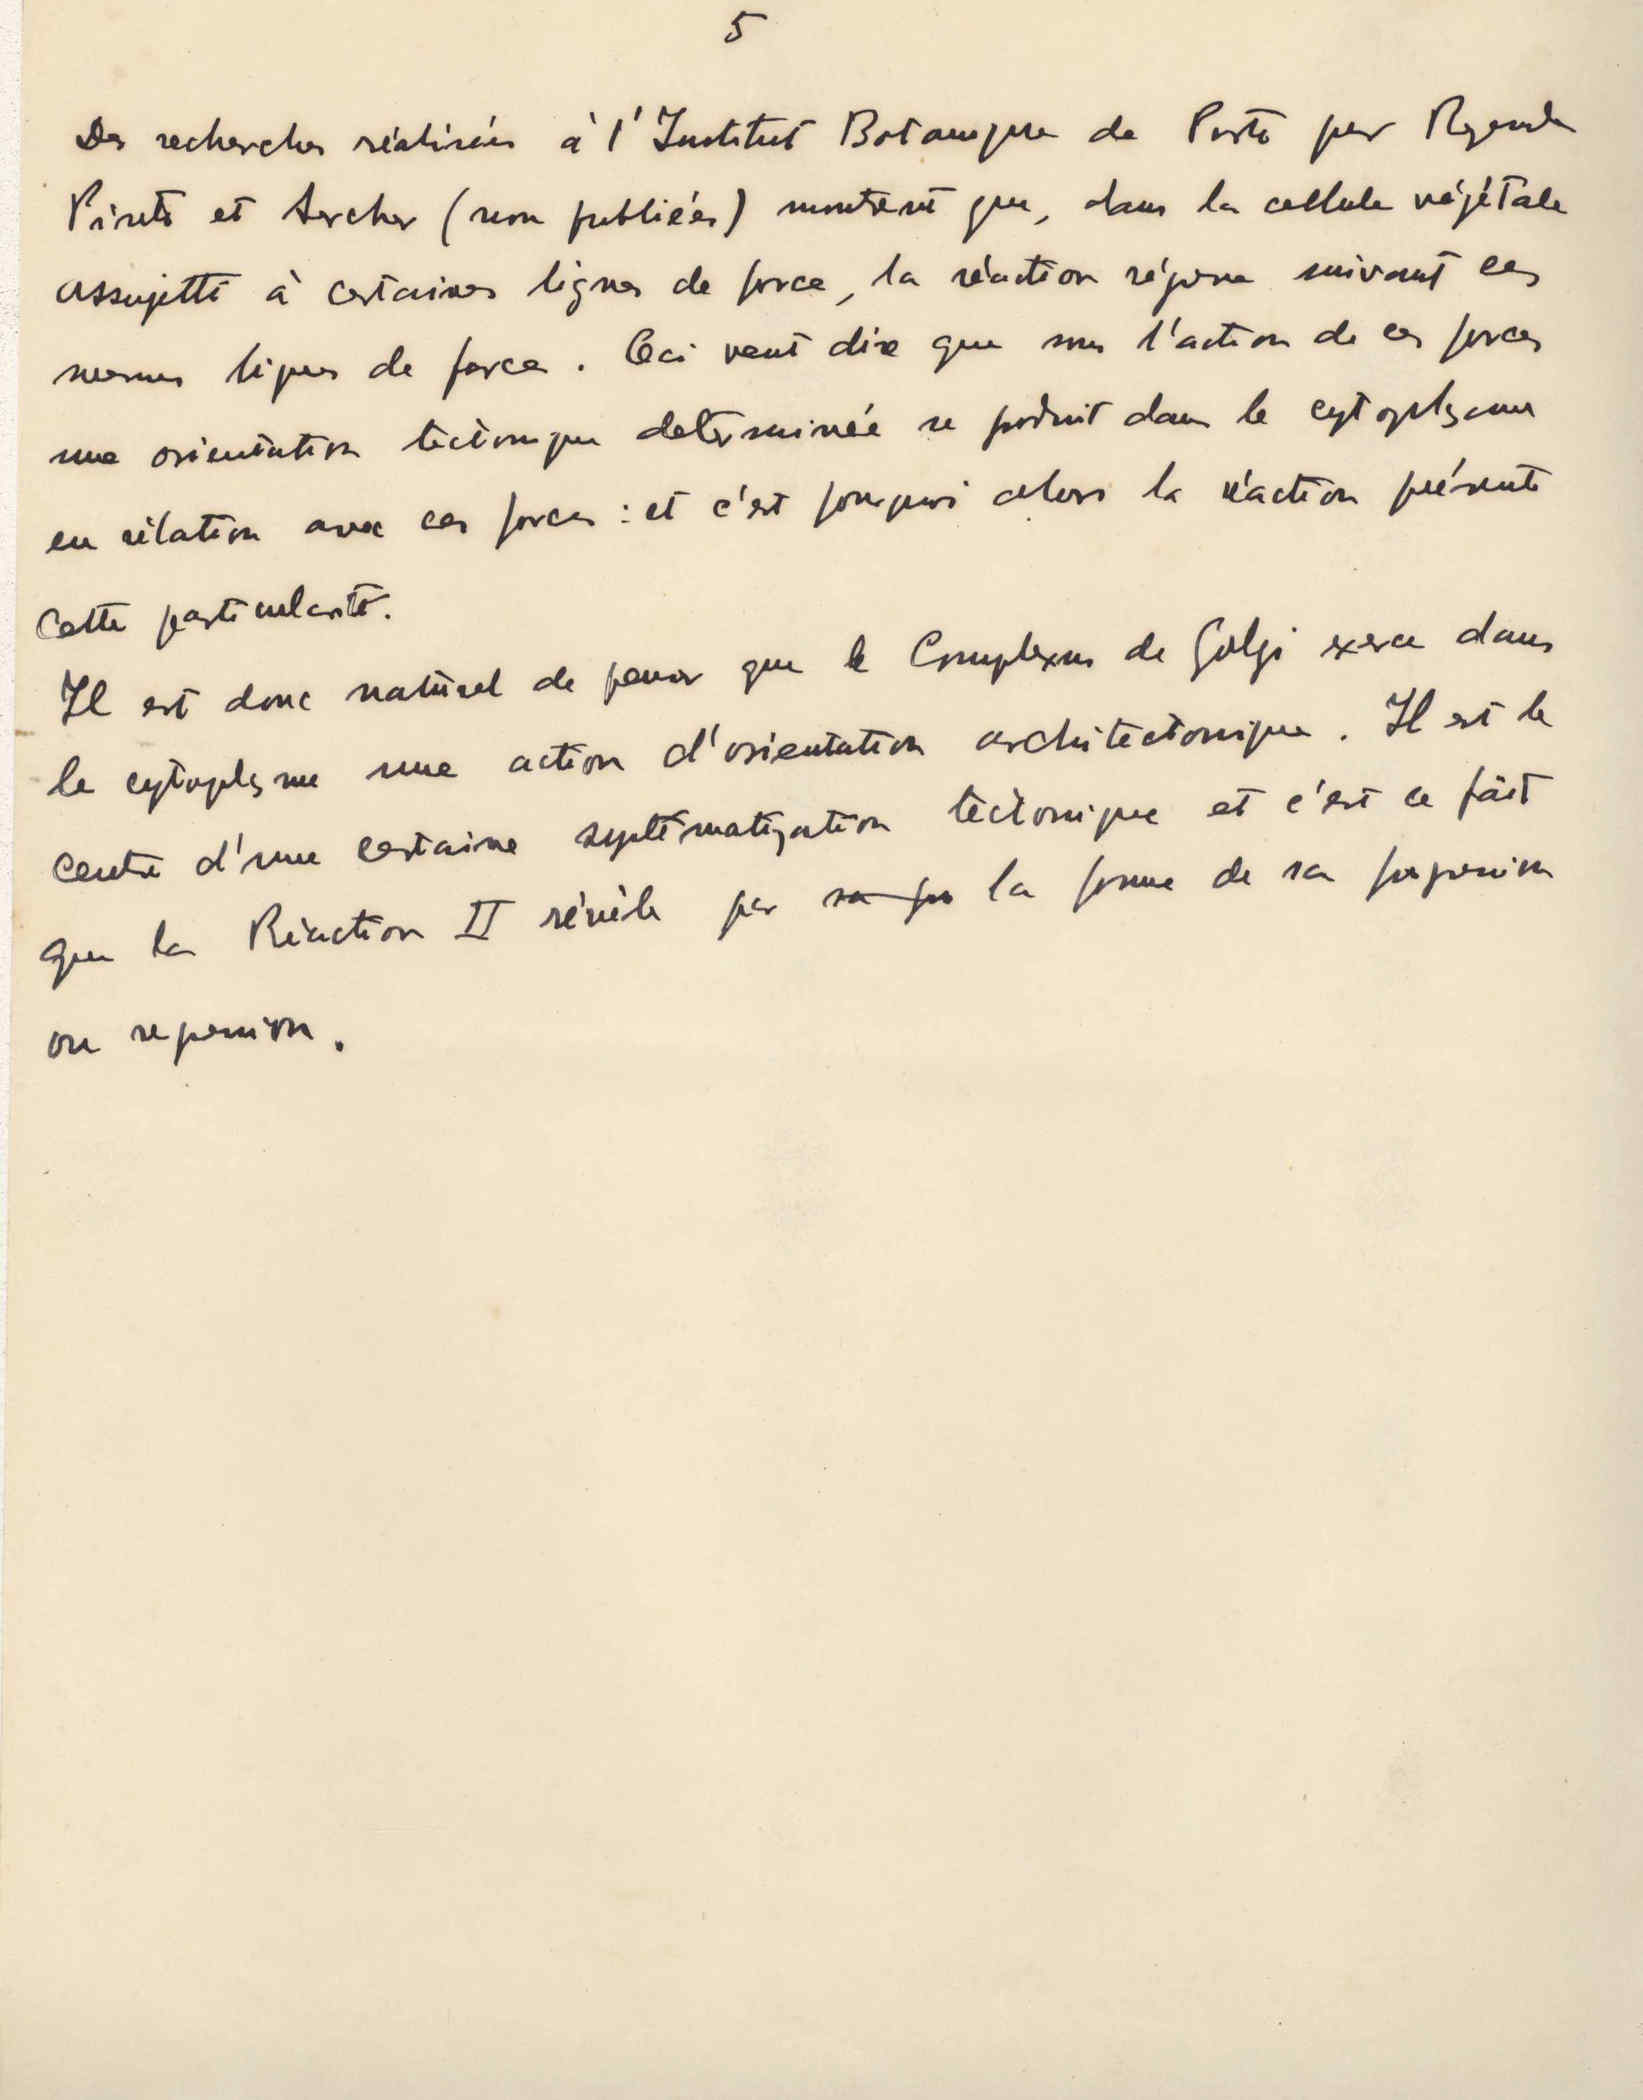 5
Des recherches réalisées à l'Institut Botanique de Porto par Resende
Pinto et Archer (non publiées) montrent que, dans la cellule végétale
assujetti à certaines lignes de force, la réaction régene suivant ces
memes lignes de force. Ceci veut dire que sous l'action de ces forces
une orientation tectonique determinée se produit dans le cytoplasme
en rélation avec ces forces : et c'est pourquoi alors la réaction présente
cette particularité.
Il est donc naturel de penser que le Complexus de Golgi exerce dans
le cytoplasme une action d'orientation architectonique. Il est le
centre d'une certaine systématization tectonique et c'est ce fait
que la Réaction II révèle par la forme de sa progression
ou regression.